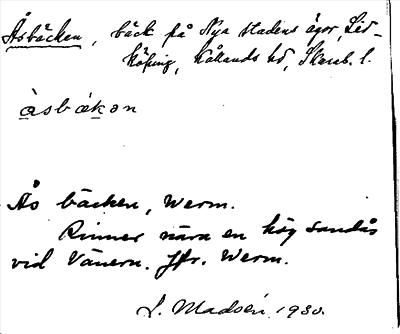 Åsbäcken, bäck på Nya stadens ägor, Lid-
köping, Kållands hd, Skarab. l.
åsbäkən
Ås bäcken, Werm.
Rinner nära en hög sandås
vid Vänern. Jfr. Werm.
I. Madsén 1930.